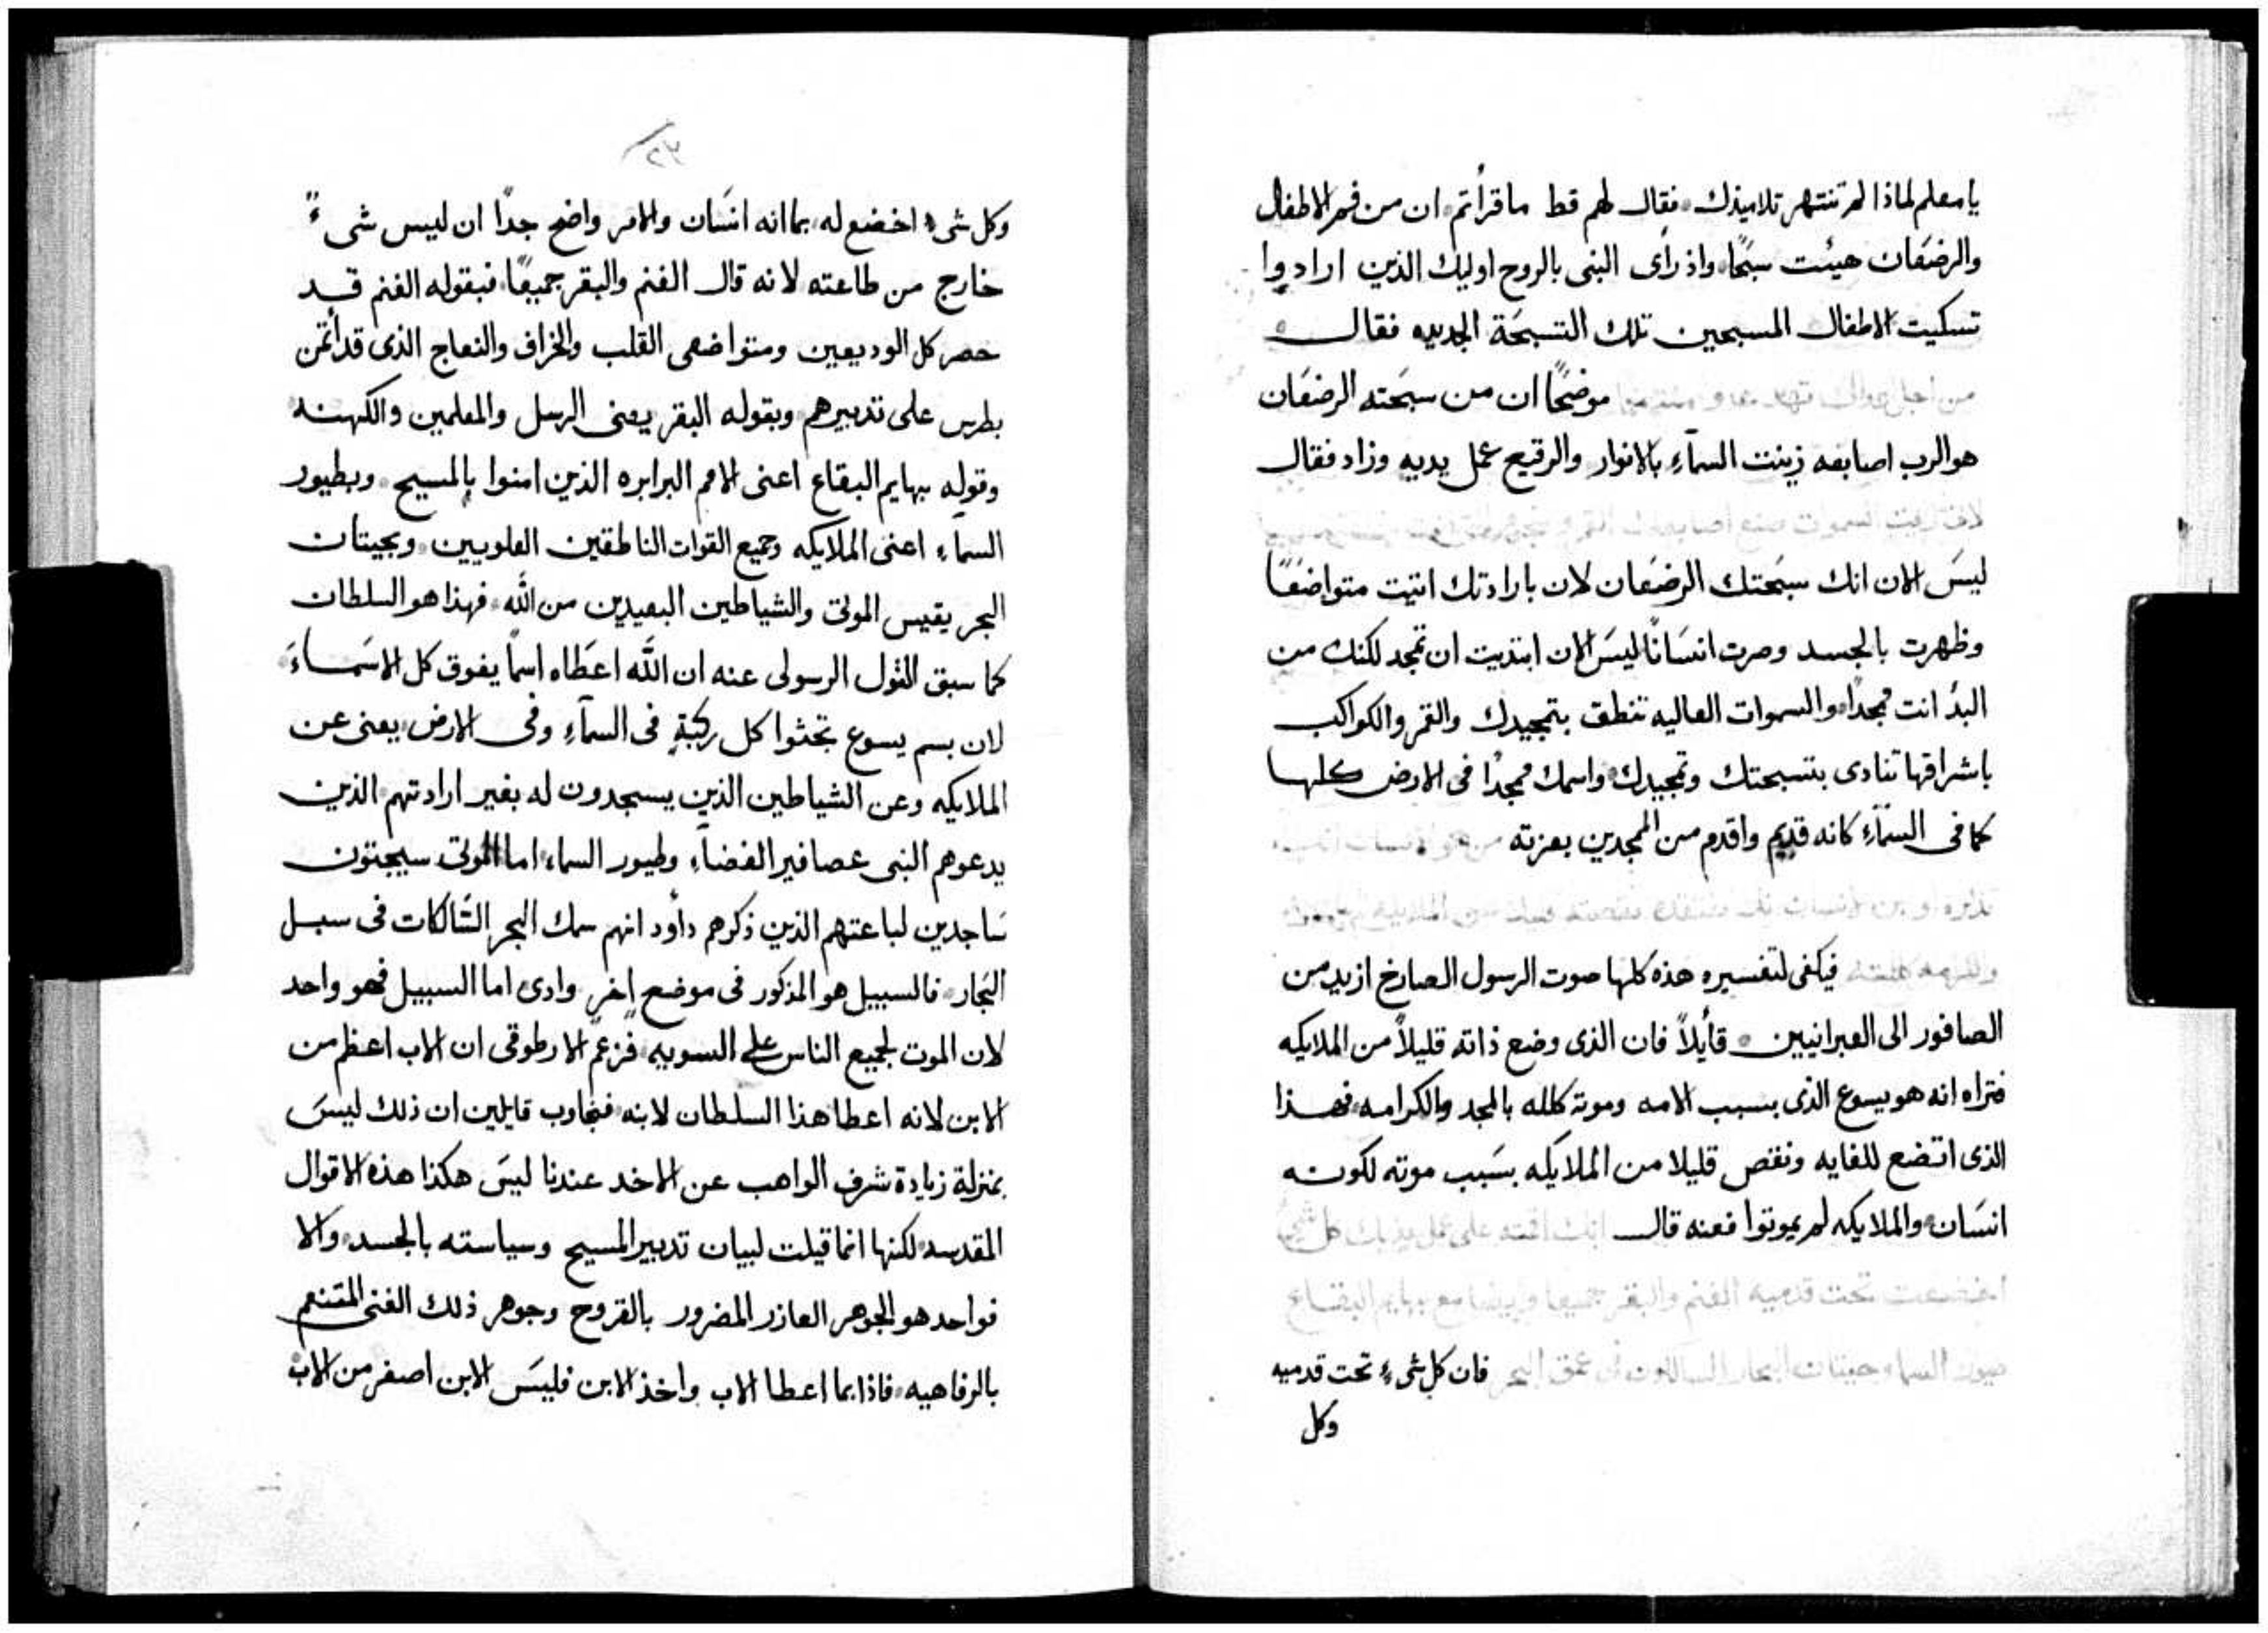 يا معلم لماذا لم تنتهر تلاميذك فقال لهم قط ما قرأتم ان من فم الاطفال
والرضعان هيئت سبحًا واذ رأى النبى بالروح اوليك الذين ارادوا
تسكيت الاطفال المسبحين تلك التسبحة الجديده فقال
من اجل موضحًا ان من سبحته الرضعان
هو الرب اصابعه زينت السمآء بالانوار والرقيع عمل يديه وزاد فقال
ليس الان انك سبحتك الرضعان لان بارادتك اتيت متواضعًا
وظهرت بالجسد وصرت انسانًا ليس الان ابتديت ان تمجد لكنك من
البدُ انت ممجدًا والسموات العاليه تنطق بتمجيدك والقمر والكواكب
باشراقها تنادى بتسبحتك وتمجيدك واسمك ممجدًا فى الارض كلها
كما فى السمآء كانه قديم واقدم من الممجدين بعزته
فيكفى لتفسيره هذه كلها صوت الرسول الصارخ ازيد من
الصافور الى العبرانيين قأيلاً فان الذى وضع ذاته قليلاً من الملايكه
فنراه انه هو يسوع الذى بسبب الامه وموته كلله بالمجد والكرامه فهذا
الذى اتضع للغايه ونقص قليلا من الملايكه بسبب موته لكونه
انسان والملايكه لم يموتوا فعنه قال
اخضعت تحت قدميه الغنم والبقر جميعا وايضا مع بهايم البقاع
فان كل شىء تحت قدميه
وكل
وكل شىء اخضع له بما انه انسان والامر واضح جدًا ان ليس شىء
خارج من طاعته لانه قال الغنم والبقر جميعًا فبقوله الغنم قد
حصر كل الوديعين ومتواضعى القلب والخراف والنعاج الذى قد أتمن
بطرس على تدبيرهم وبقوله البقر يعنى الرسل والمعلمين والكهنه
وقوله بهايم البقاع اعنى الامم البرابره الذين امنوا بالمسيح وبطيور
السمآء اعنى الملايكه وجميع القوات الناطقين العلويين وبحيتان
البحر يقيس الموتى والشياطين البعيدين من الله فهذا هو السلطان
كما سبق القول الرسولى عنه ان الله اعطاه اسماً يفوق كل الاسماء
لان بسم يسوع تجثوا كل ركبةٍ فى السمآء وفى الارض يعنى عن
الملايكه وعن الشياطين الذين يسجدون له بغير ارادتهم الذين
يدعوهم النبى عصافير الفضآء وطيور السماء اما الموتى سيجثون
ساجدين لباعثهم الذين ذكرهم دأود انهم سمك البحر السالكات فى سبل
البحار فالسبيل هو المذكور فى موضع اخر وادى اما السبيل فهو واحد
لان الموت لجميع الناس على السويه فزعم الارطوقى ان الاب اعظم من
الابن لانه اعطا هذا السلطان لابنه فنجاوب قايلين ان ذلك ليس
بمنزلة زيادة شرف الواهب عن الاخد عندنا ليس هكذا هذه الاقوال
المقدسه لكنها انما قيلت لبيان تدبير المسيح وسياسته بالجسد والا
فواحد هو الجوهر العازر المضرور بالقروح وجوهر ذلك الغنى المتنعم
بالرفاهيه فاذا بما اعطا الاب واخذ الابن فليس الابن اصغر من الاب